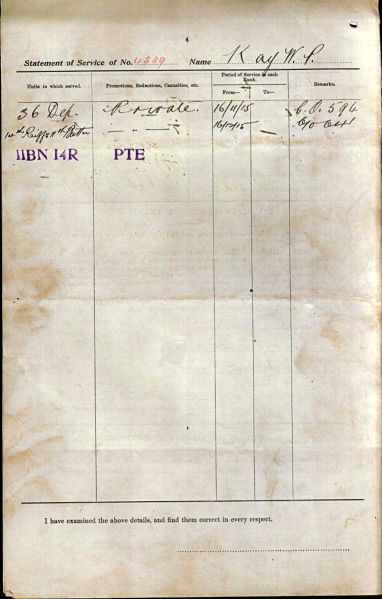 4
Statement of Service of No. 4539 Name Kay W. P.
Units in which served. Promotions, Reductions, Casualties, etc. Period of Service in each Rank. Remarks.
From— To—
36 Dep. Private. 16/11/15 C.O. 594
14th Reinfs 11th Battn — " — 16/12/15
11BN 14R PTE
I have examined the above details, and find them correct in every respect.